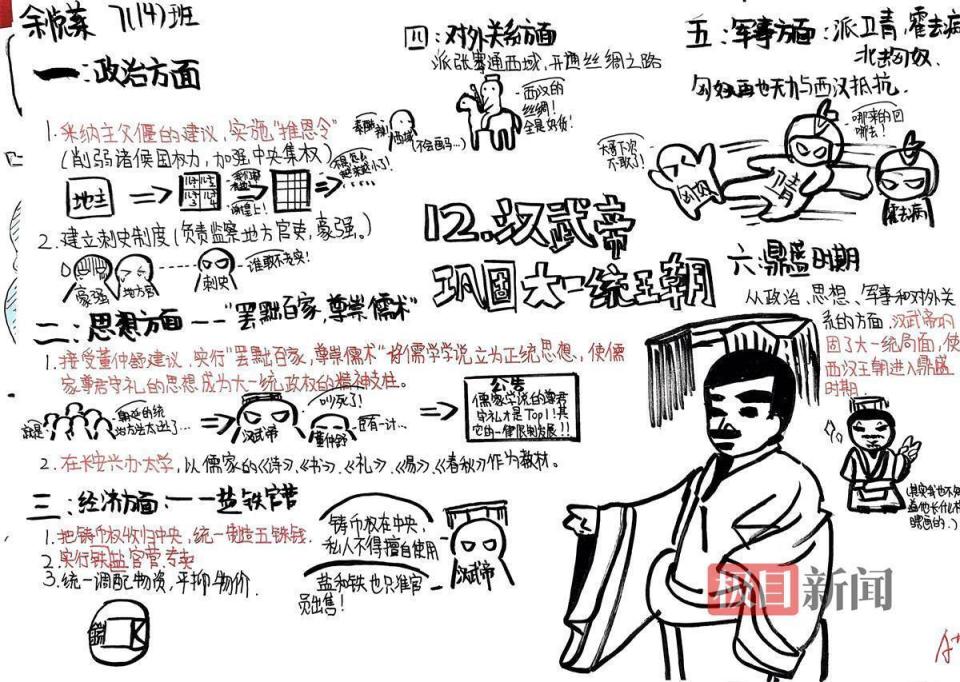 7(14)班
一:政治方面
1.采纳主父偃的建议,实施“推恩令”
(削弱诸侯国权力,加强中央集权)
地主
2.建立刺史制度(负责监察地方官吏,豪强。)
豪强
地方官
刺史
谁敢不老实!
二:思想方面——“罢黜百家,尊崇儒术”
1.接受董仲舒建议,实行“罢黜百家,尊崇儒术”把儒学学说立为正统思想,使儒
家尊君守礼的思想成为大一统政权的精神支柱。
朝廷的统
治方法太过了...
汉武帝
吵死了!
董仲舒
臣有一计...
公告
儒家学说的尊君
守礼才是Top1!其
它的一律限制发展!!
2.在长安兴办太学,以儒家的《诗》、《书》、《礼》、《易》、《春秋》作为教材。
三:经济方面——盐铁官营
1.把铸币权收归中央,统一铸造五铢钱.
2.实行铁盐官营专卖
3.统一调配物资,平抑物价
铸币权在中央,
私人不得擅自使用
盐和铁也只准官
员出售!
汉武帝
四:对外关系方面
派张骞通西域,开通丝绸之路
西域
(不会画马...)
西汉的
丝绸!
全是好货!
12.汉武帝
巩固大一统王朝
五:军事方面:派卫青,霍去病
北击匈奴.
匈奴再也无力与西汉抵抗.
大哥下次
不敢了!
匈奴
卫青
哪来的回
哪去!
霍去病
六:鼎盛时期
从政治、思想、军事和对外关
系的方面,汉武帝巩
固了大一统局面,使
西汉王朝进入鼎盛
时期.
(其实我也不知
道他长什么样
瞎画的.)
极目新闻
A+